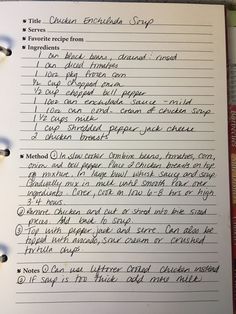 Title Chicken Enchilada Soup
Serves
Favorite recipe from
Ingredients
1 can black beans, drained & rinsed
1 can diced tomatoes
1 10oz pkg frozen corn
1/2 cup chopped onion
1/2 cup chopped bell pepper
1 10oz can enchilada sauce - mild
1 10oz can cond. cream of chicken soup
1 1/2 cups milk
1 cup shredded pepper jack cheese
2 chicken breasts
Method ① In slow cooker combine beans, tomatoes, corn,
onion and bell pepper. Place 2 chicken breasts on top
of mixture. In large bowl whisk sauce and soup.
Gradually mix in milk until smooth. Pour over
ingredients. Cover, cook on low 6-8 hrs or high
3-4 hours.
② Remove chicken and cut or shred into bite sized
pieces. Add back to soup.
③ Top with pepper jack and serve. Can also be
topped with avocado, sour cream or crushed
tortilla chips
Notes ① Can use leftover cooked chicken instead
② If soup is too thick add more milk